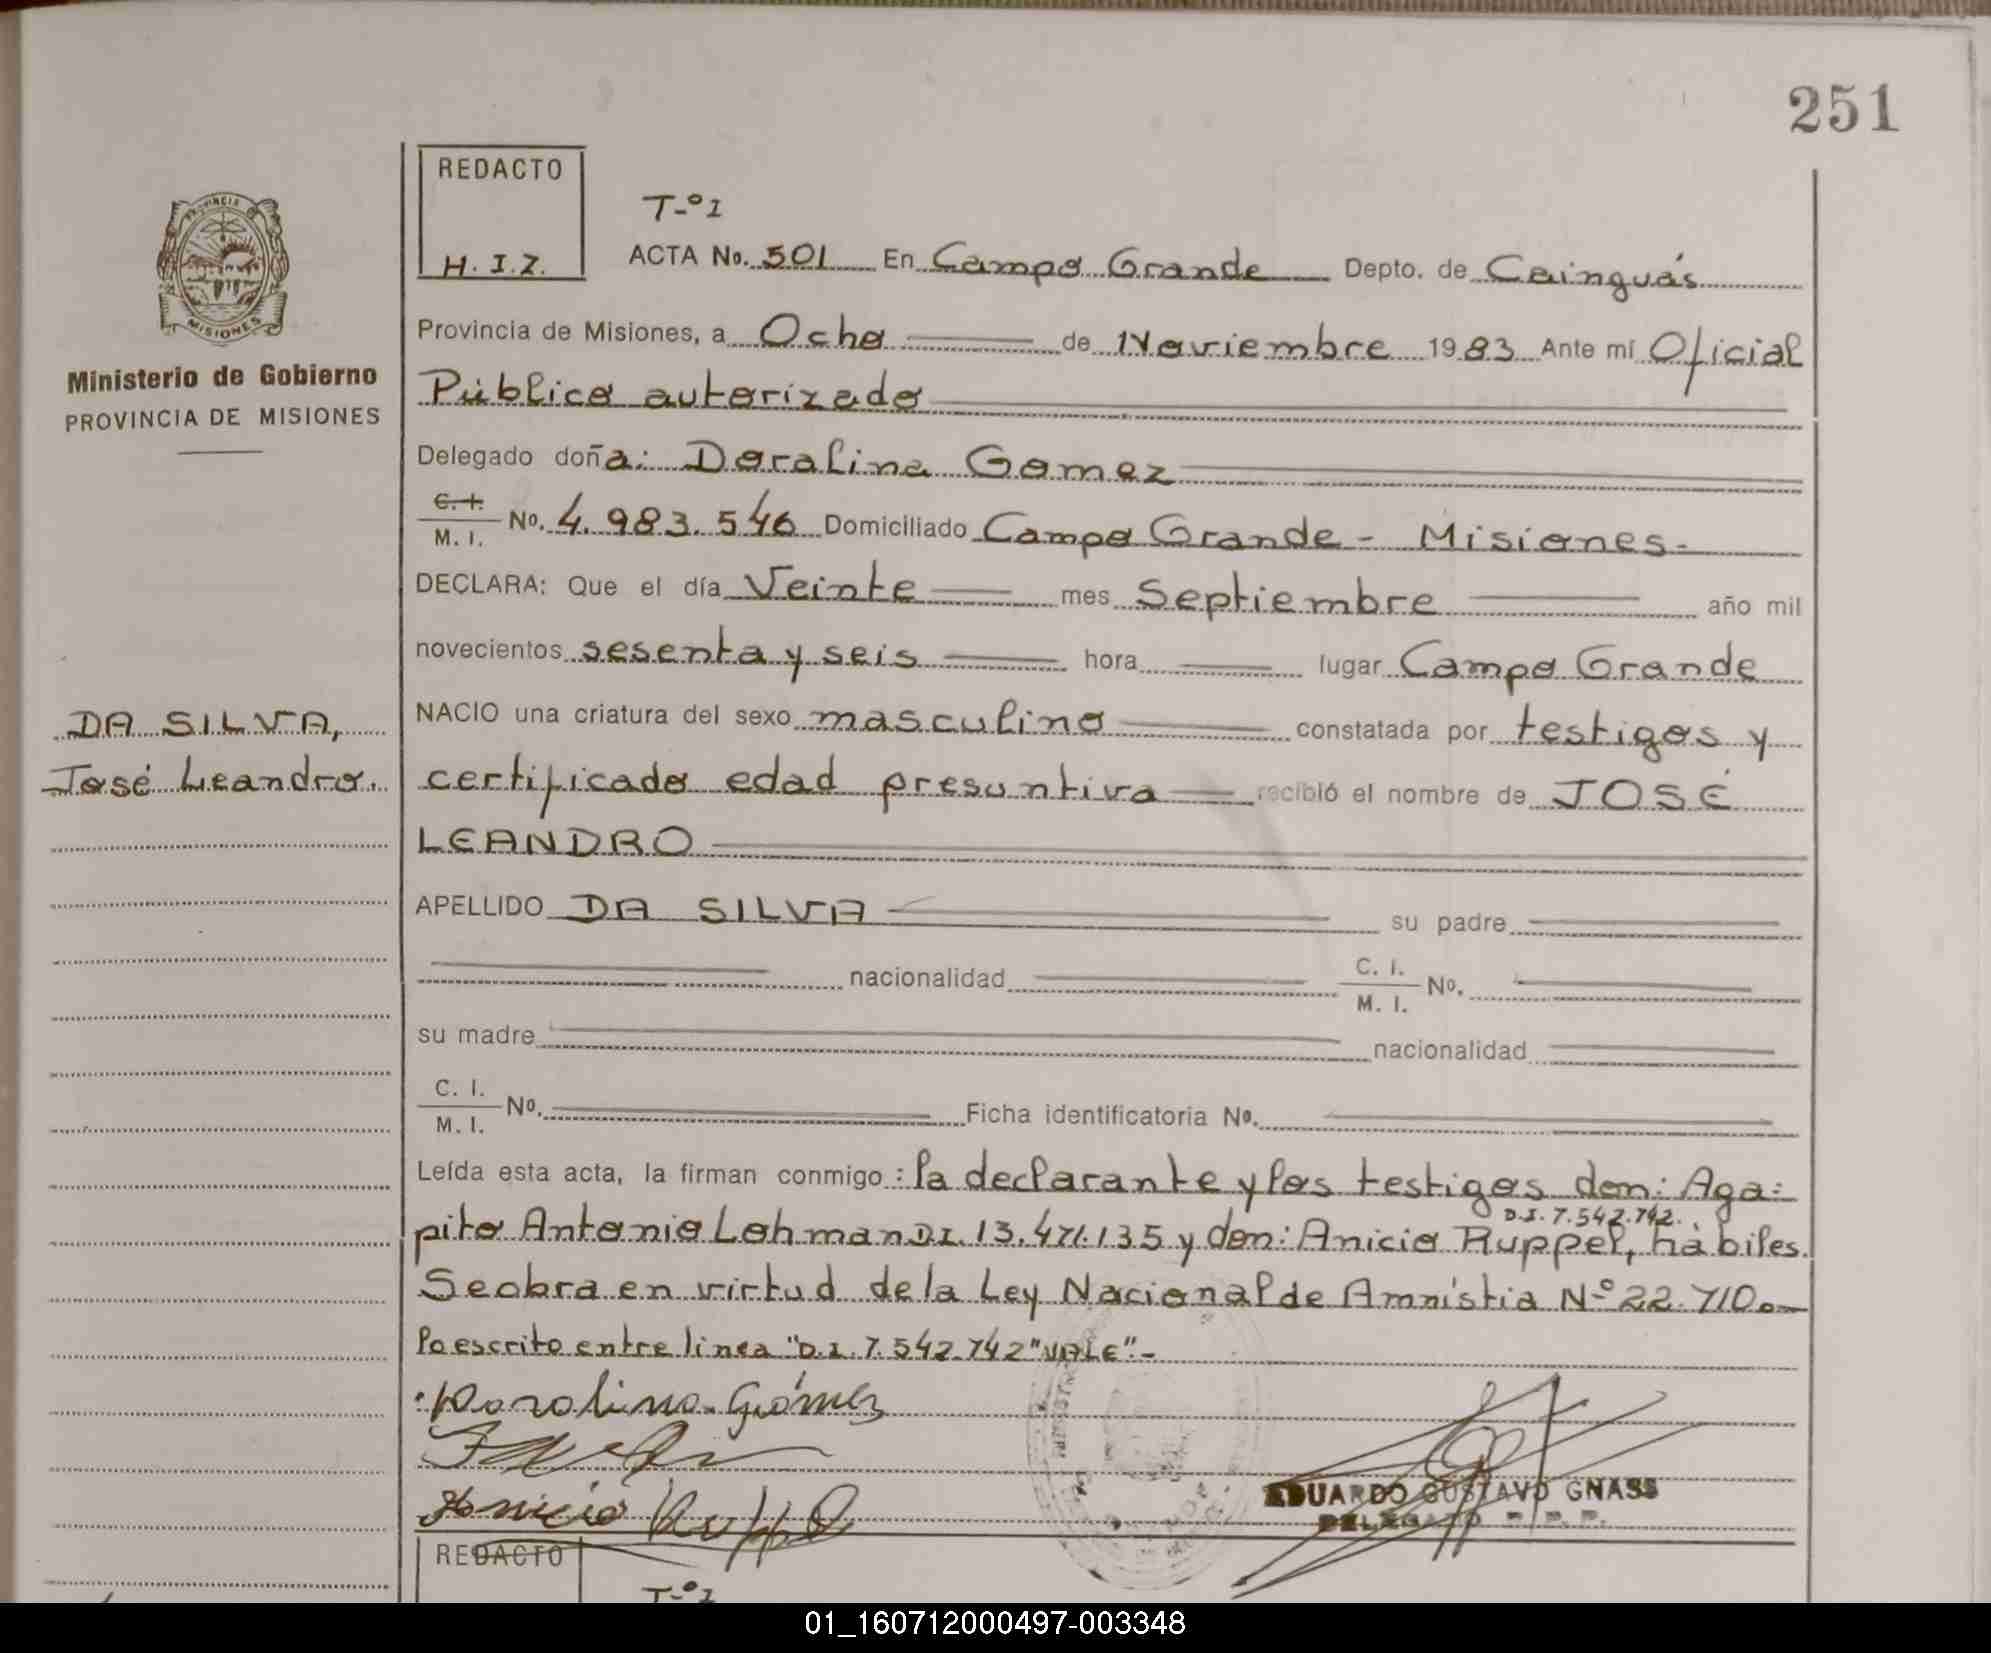 251
REDACTO
H. I. Z.
T-º1
PROVINCIA
MISIONES
Ministerio de Gobierno
PROVINCIA DE MISIONES
ACTA No. 501 En Campo Grande Depto. de Cainguás
Provincia de Misiones, a Ocho de Noviembre 1983 Ante mí Oficial
Público autorizado
Delegado doña: Doralina Gomez
C. I. / M. I. Nº. 4.983.546 Domiciliado Campo Grande - Misiones-
DECLARA: Que el día Veinte mes Septiembre año mil
novecientos sesenta y seis hora lugar Campo Grande
DA SILVA,
José Leandro.
NACIO una criatura del sexo masculino constatada por testigos y
certificado edad presuntiva recibió el nombre de JOSÉ
LEANDRO
APELLIDO DA SILVA su padre
nacionalidad C. I. / M. I. Nº.
su madre nacionalidad
C. I. / M. I. Nº. Ficha identificatoria Nº.
Leída esta acta, la firman conmigo : la declarante y los testigos don: Aga=
D.I. 7.542.742.
pito Antonio Lohman D.I. 13.471.135 y don: Anicio Ruppel, hábiles.
Se obra en virtud de la Ley Nacional de Amnistia Nº 22.710.-
lo escrito entre linea "D.I. 7.542.742" VALE".-
Doralina Gómez
Anicio Ruppel
EDUARDO GUSTAVO GNASS
DELEGADO
REDACTO
T-º1
01_160712000497-003348